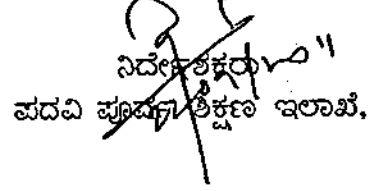 ನಿರ್ದೇಶಕರು
ಪದವಿ ಪೂರ್ವ ಶಿಕ್ಷಣ ಇಲಾಖೆ.